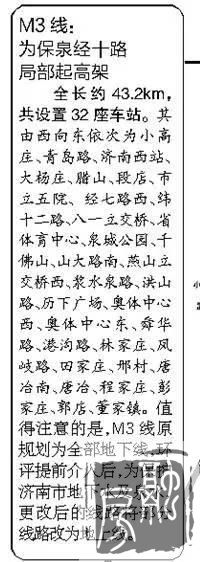 M3线：
为保泉经十路
局部起高架
全长约43.2km，
共设置32座车站。其
由西向东依次为小高
庄、青岛路、济南西站、
大杨庄、腊山、段店、市
立五院、经七路西、纬
十二路、八一立交桥、省
体育中心、泉城公园、千
佛山、山大路南、燕山立
交桥西、浆水泉路、洪山
路、历下广场、奥体中心
西、奥体中心东、舜华
路、港沟路、林家庄、凤
岐路、田家庄、邢村、唐
冶南、唐冶、程家庄、彭
家庄、郭店、董家镇。值
得注意的是，M3线原
规划为全部地下线，环
评提前介入后，为保护
济南市地下水及泉水，
更改后的线路将部分
线路改为地上线。